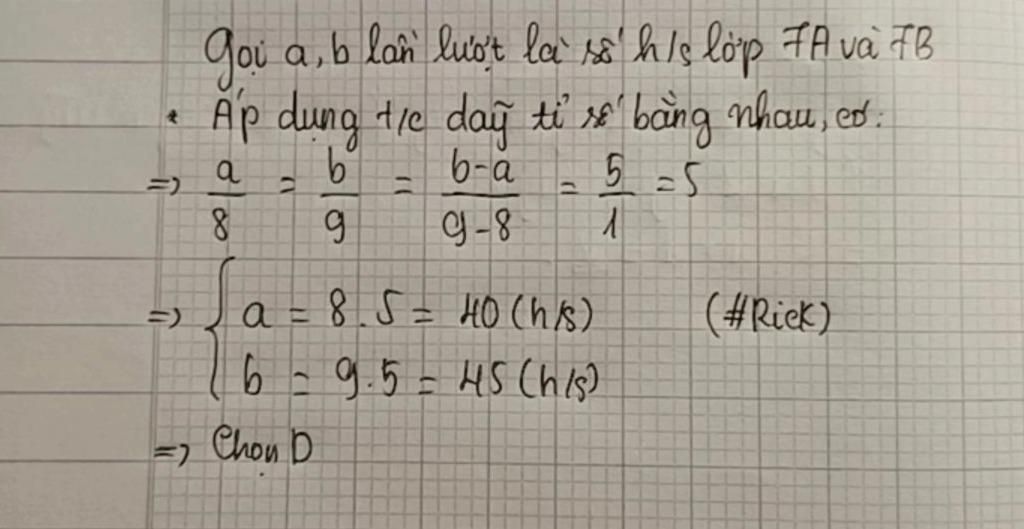 Gọi a, b lần lượt là số h/s lớp 7A và 7B
* Áp dụng t/c dãy tỉ số bằng nhau, có:
=> a/8 = b/9 = (b-a)/(9-8) = 5/1 = 5
=> { a = 8.5 = 40 (h/s) (#Rick)
b = 9.5 = 45 (h/s)
=> Chọn D